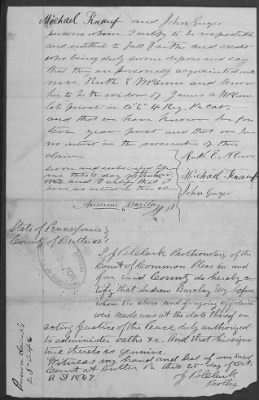 Michael Knauf and John Guyer
persons whom I certify to be respectable
and entitled to full Faith and credit
who being duly sworn deposes and say
that they are personally acquainted with
Mrs. Ruth E. McCune and know
her to be the widow of James A McCune
late private in Co "C" 4 Reg. Pa Cav.
and that we have known her for
years past and that we have
no interest in the prosecution of this
claim.
Sworn and subscribed before
me this day of
and I
have no interest in this claim
Ruth E. McCune
Michael Knauf
John Guyer
Andrew Barclay J.P.
State of Pennsylvania
County of Butler SS
I J. B. Clark Prothonotary of the
Court of Common Pleas in and
for said County do hereby cer-
tify that Andrew Barclay Esq before
whom the above and foregoing affidavits
were made was at the date thereof an
acting Justice of the Peace duly authorized
to administer oaths &c. And that his signa
ture thereto is genuine.
Witness my hand and seal of said
Court at Butler this day of
A D 1867
J. B. Clark
Prothy